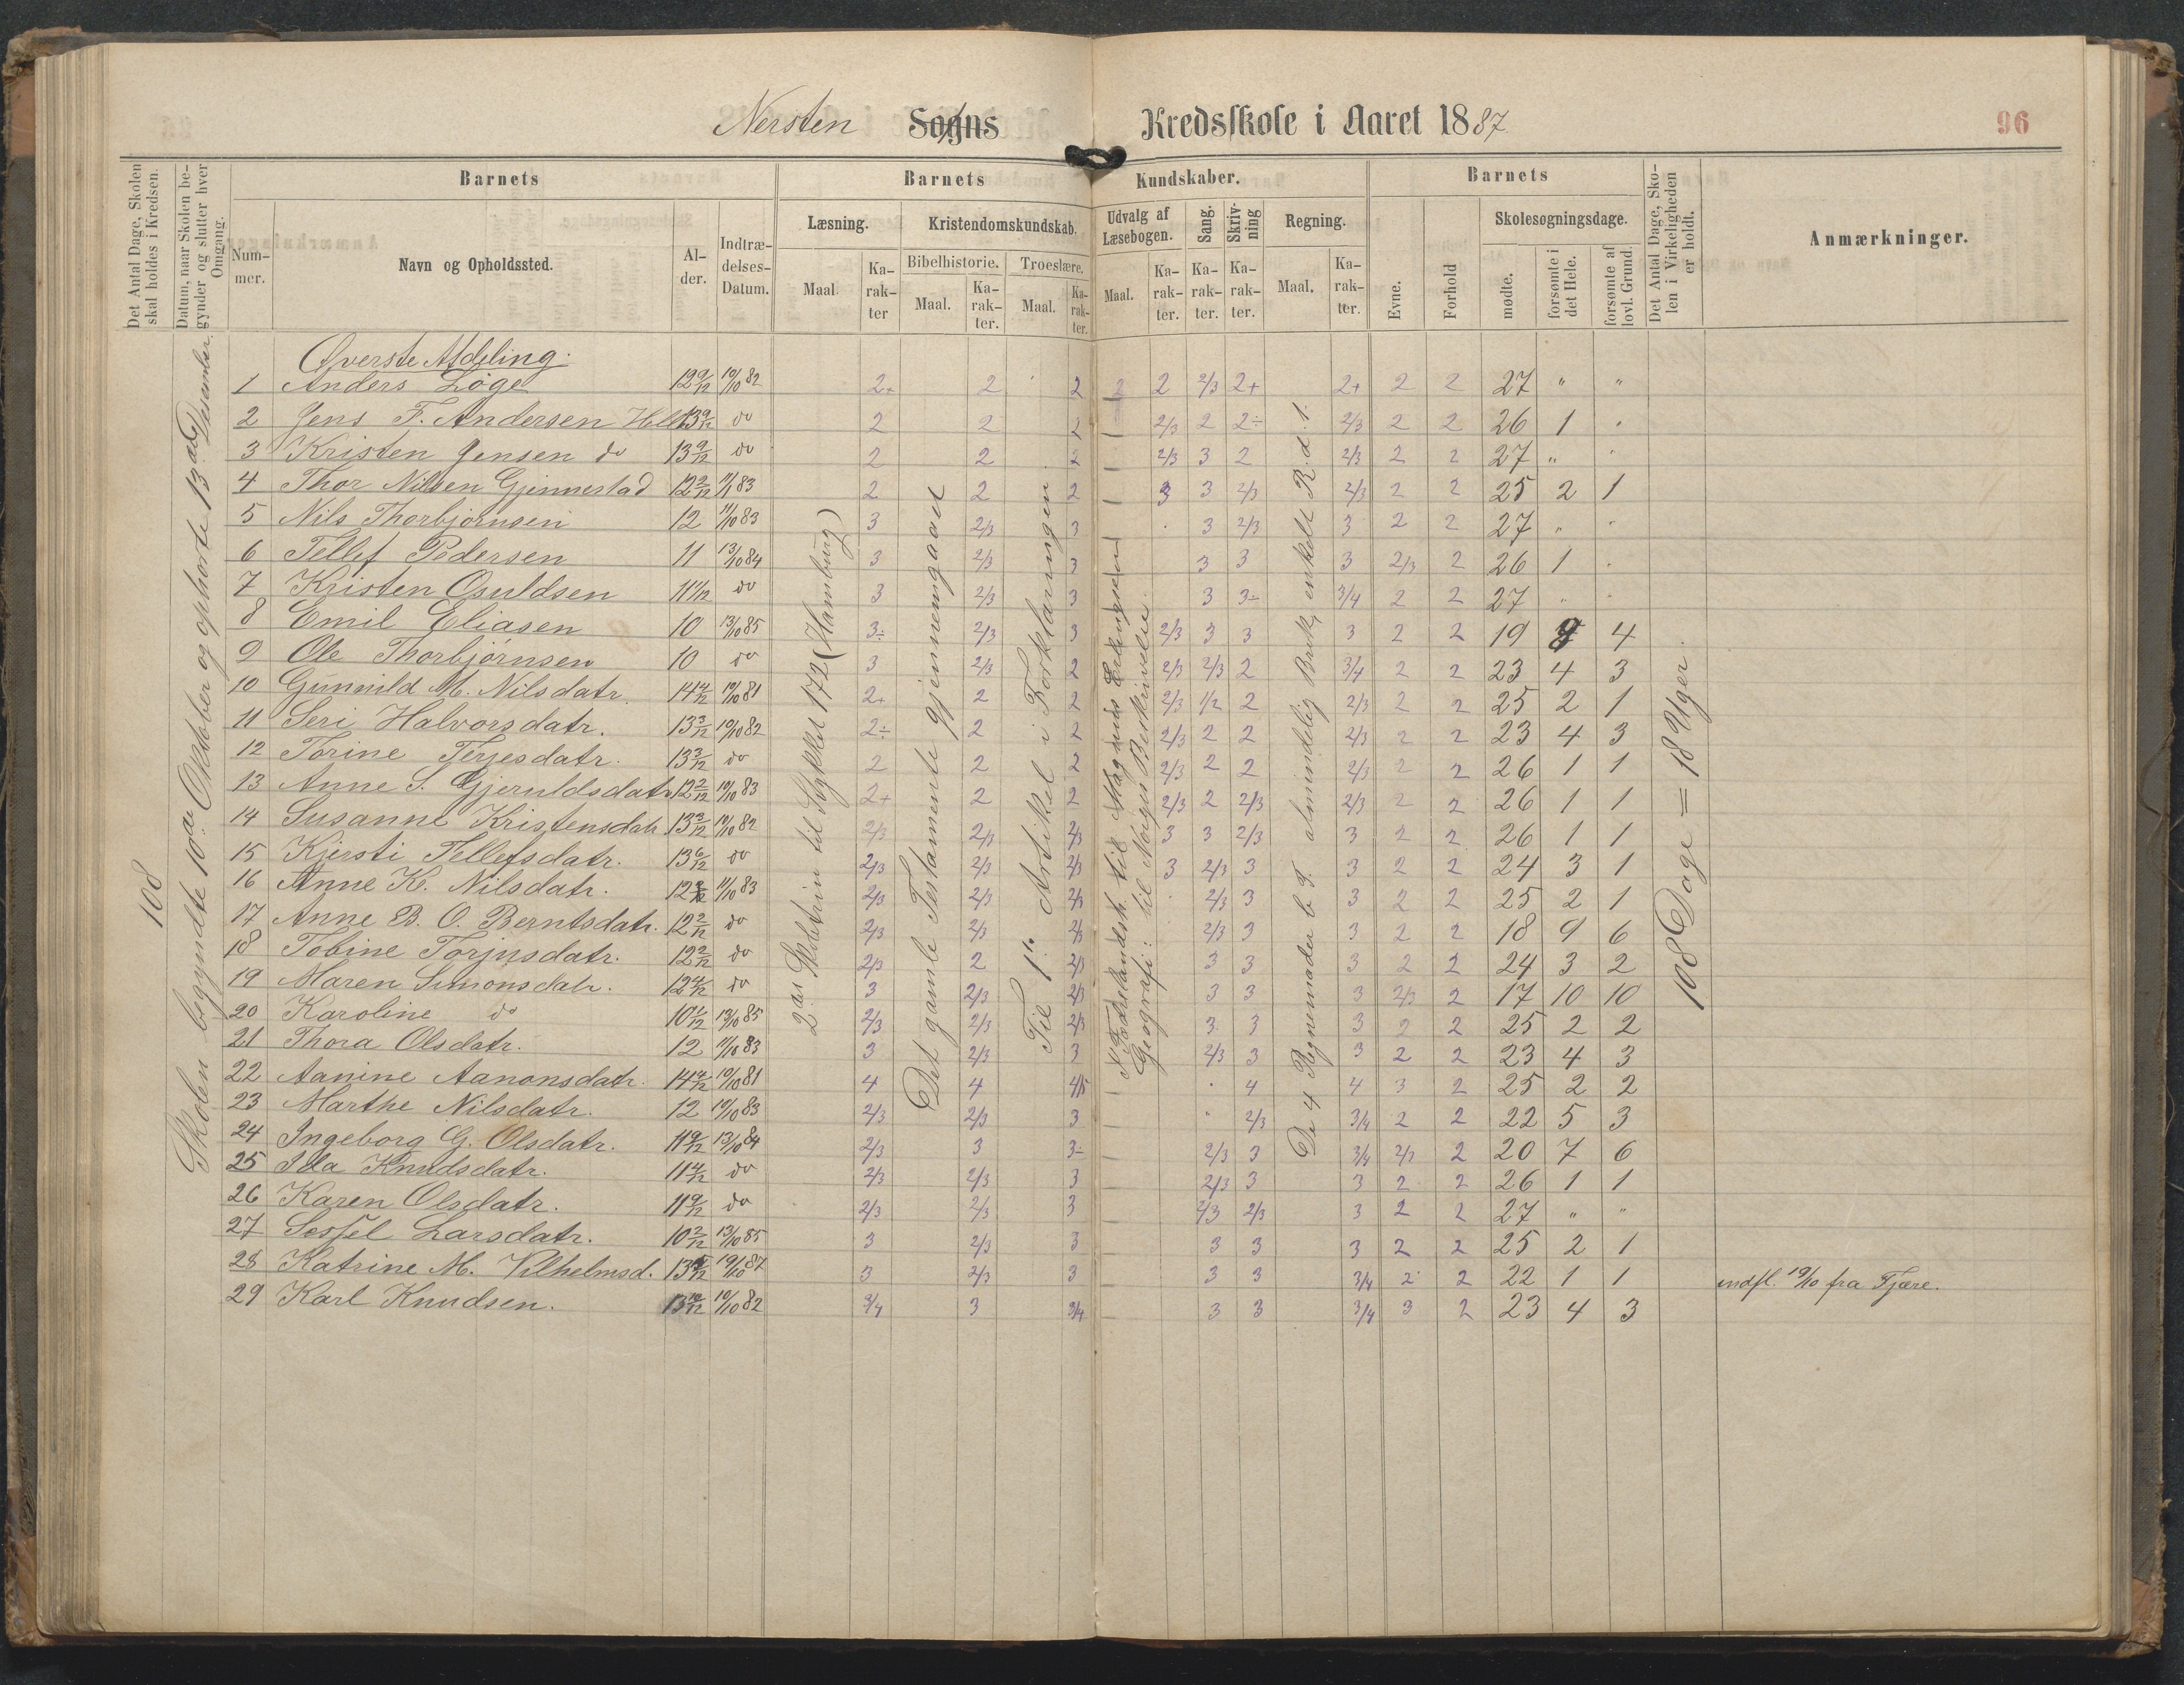 Nersten Sogns Kredsskole i Aaret 1887
96
Det Antal Dage, Skolen skal holdes i Kredsen.
Datum, naar Skolen begynder og slutter hver Omgang.
Barnets
Barnets
Kundskaber.
Barnets
Det Antal Dage, Skolen i Virkeligheden er holdt.
Anmærkninger.
Nummer.
Navn og Opholdssted.
Alder.
Indtrædelses-Datum.
Læsning.
Kristendomskundskab.
Udvalg af Læsebogen.
Sang.
Skrivning
Regning.
Evne.
Forhold
Skolesøgningsdage.
Maal.
Karakter
Bibelhistorie.
Troeslære.
Maal.
Karakter.
Maal.
Karakter.
Maal.
Karakter.
Karakter.
Karakter.
Maal.
Karakter.
mødte.
forsømte i det Hele.
forsømte af lovl. Grund.
108
Skolen begyndte 10de Oktober og ophørte 13de Desember.
Øverste Afdeling.
1 Anders Løge 12 9/12 10/10 82 2+ 2 2 2 2 2/3 2+ 2+ 2 2 27 " "
2 Jens F. Andersen 13 9/12 do 2 2 2 2/3 2 2÷ 2/3 2 2 26 1 "
3 Kristen Jensen do 13 9/12 do 2 2 2 2/3 3 2 2/3 2 2 27 " "
4 Thor Nilsen Gjennestad 12 2/12 83 2 2 2 3 3 2/3 2/3 2 2 25 2 1
5 Nils Thorbjørnsen 12 11/10 83 3 2/3 3 3 2/3 3 2 2 27 " "
6 Tellef Pedersen 11 13/10 84 3 2/3 3 3 3 3 2/3 2 26 1 "
7 Kristen Osuldsen 11 1/12 do 3 2/3 3 3 3÷ 3/4 2 2 27 " "
8 Emil Eliasen 10 13/10 85 3÷ 2/3 3 2/3 3 3 3 2 2 19 8 4
9 Ole Thorbjørnsen 10 do 3 2/3 2 2/3 2/3 2 3/4 2 2 23 4 3
10 Gunnild M. Nilsdatr. 14 4/12 10/10 81 2+ 2 2 2/3 1/2 2 2/3 2 2 25 2 1
11 Seri Halvorsdatr. 13 3/12 10/10 82 2÷ 2 2 2/3 2 2 2/3 2 2 23 4 3
12 Torine Terjesdatr. 13 3/12 do 2 2 2 2/3 2 2 2/3 2 2 26 1 1
13 Anne S. Gjeruldsdatr. 12 2/12 10/10 83 2+ 2 2 2/3 2 2/3 2/3 2 2 26 1 1
14 Susanne Kristensdatr. 13 3/12 10/10 82 2/3 2/3 2/3 3 3 2/3 3 2 2 26 1 1
15 Kjersti Tellefsdatr. 13 6/12 do 2/3 2/3 2/3 3 2/3 3 3 2 2 24 3 1
16 Anne K. Nilsdatr. 12 11/10 83 2/3 2/3 2/3 2/3 3 3 2 2 25 2 1
17 Anne B. O. Berntsdatr. 12 2/12 do 2/3 2/3 2/3 2/3 3 3 2 2 18 9 6
18 Tobine Torjusdatr. 12 2/12 do 2/3 2 2/3 3 3 3 2 2 24 3 2
19 Maren Simonsdatr. 12 4/12 do 3 2/3 2/3 3 3 3 2/3 2 17 10 10
20 Karoline do 10 1/12 13/10 85 2/3 2/3 2/3 3 3 3 2 2 25 2 2
21 Thora Olsdatr. 12 11/10 83 3 2/3 3 2/3 3 3 2 2 23 4 3
22 Aanine Aanonsdatr. 14 4/12 10/10 81 4 4 4/5 " 4 4 3 2 25 2 2
23 Marthe Nilsdatr. 12 10/10 83 2/3 2/3 3 " 2/3 3/4 2 2 22 5 3
24 Ingeborg G. Olsdatr. 11 9/12 13/10 84 2/3 3 3÷ 2/3 3 3/4 2/3 2 20 7 6
25 Ida Knudsdatr. 11 4/12 do 2/3 2/3 3 2/3 3 3 2 2 26 1 1
26 Karen Olsdatr. 11 9/12 do 2/3 2/3 3 2/3 2/3 3 2 2 27 " "
27 Sessel Larsdatr. 10 2/12 13/10 85 3 2/3 3 3 3 3 2 2 25 2 1
28 Katrine M. Vilhelmsd. 13 19/10 87 3 2/3 3 3 3 3/4 2 2 22 1 1 indfl. 19/10 fra Fjære.
29 Karl Knudsen. 13 10/12 10/10 82 3/4 3 3/4 3 3 3/4 3 2 23 4 3
til Stykket 172 (Hamburg)
Det gamle Testamente gjennemgaaet
Til 1ste Artikel i Forklaringen
Fædrelandsh. til Magnus
Geografi: til Norges Beskrivelse.
De 4 Regnemaader b. T. almindelig Brøk, enkelt R. d. 1.
108 Dage = 18 Uger.